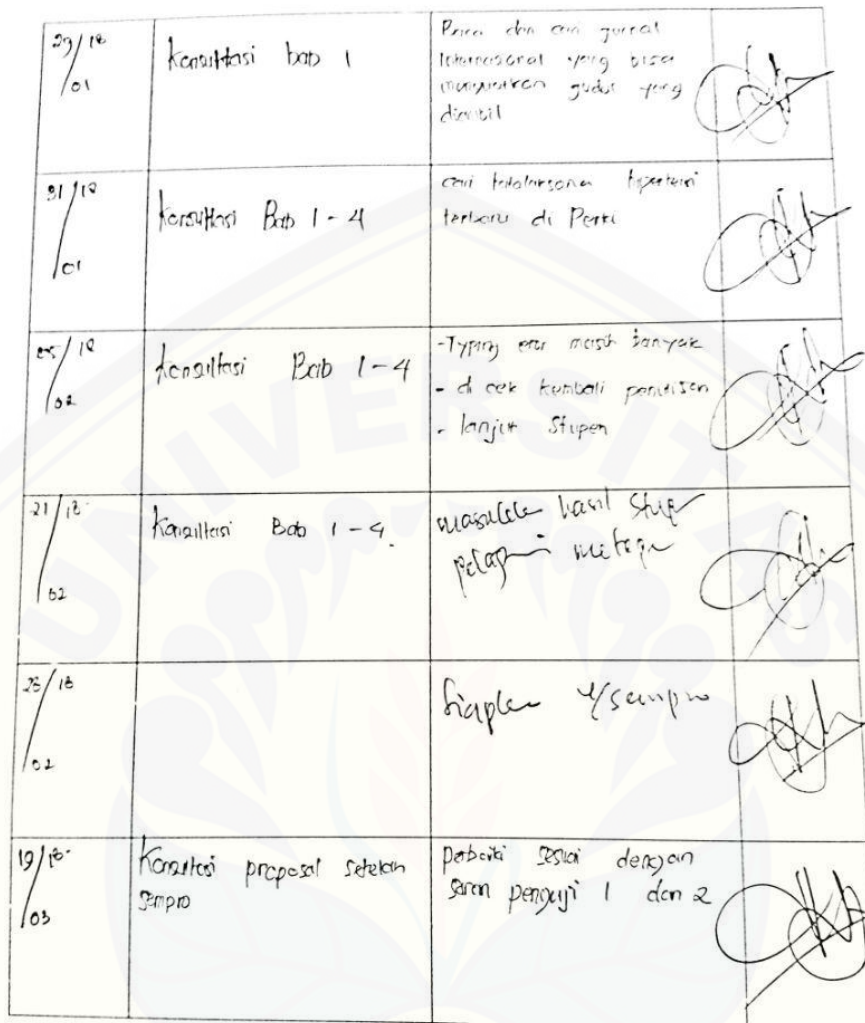 29/18
/01
Konsultasi bab 1
Baca dan cari jurnal
Internasional yang bisa
menguatkan judul yang
diambil
31/18
/01
Konsultasi Bab 1-4
cari tatalaksana hipertensi
terbaru di Perki
/18
/02
Konsultasi Bab 1-4
-Typing eror masih banyak
- di cek kembali penulisan
- lanjut Stupen
21/18
/02
Konsultasi Bab 1-4.
masukkan hasil
/18
/02
Siapkan u/sempro
19/18
/03
Konsultasi proposal setelah
sempro
perbaiki sesuai dengan
saran penguji 1 dan 2
UNIVERSITAS